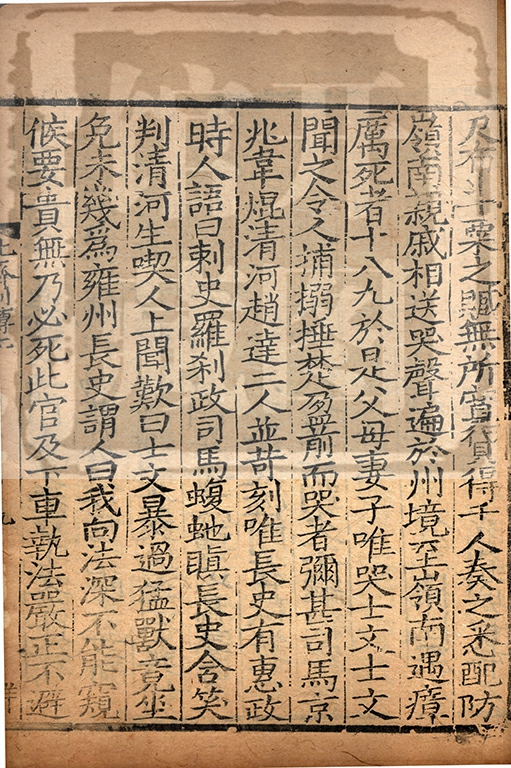 尺布斗粟之贓無所寬貸得千人奏之悉配防
嶺南親戚相送哭聲遍於州境至嶺南遇瘴
厲死者十八九於是父母妻子唯哭士文士文
聞之令人捕搦捶楚盈前而哭者彌甚司馬京
兆韋焜清河趙達二人並苛刻唯長史有惠政
時人語曰刺史羅刹政司馬蝮虵瞋長史含笑
判清河生喫人上聞歎曰士文暴過猛獸竟坐
免未幾為雍州長史謂人曰我向法深不能窺
候要貴無乃必死此官及下車執法嚴正不避